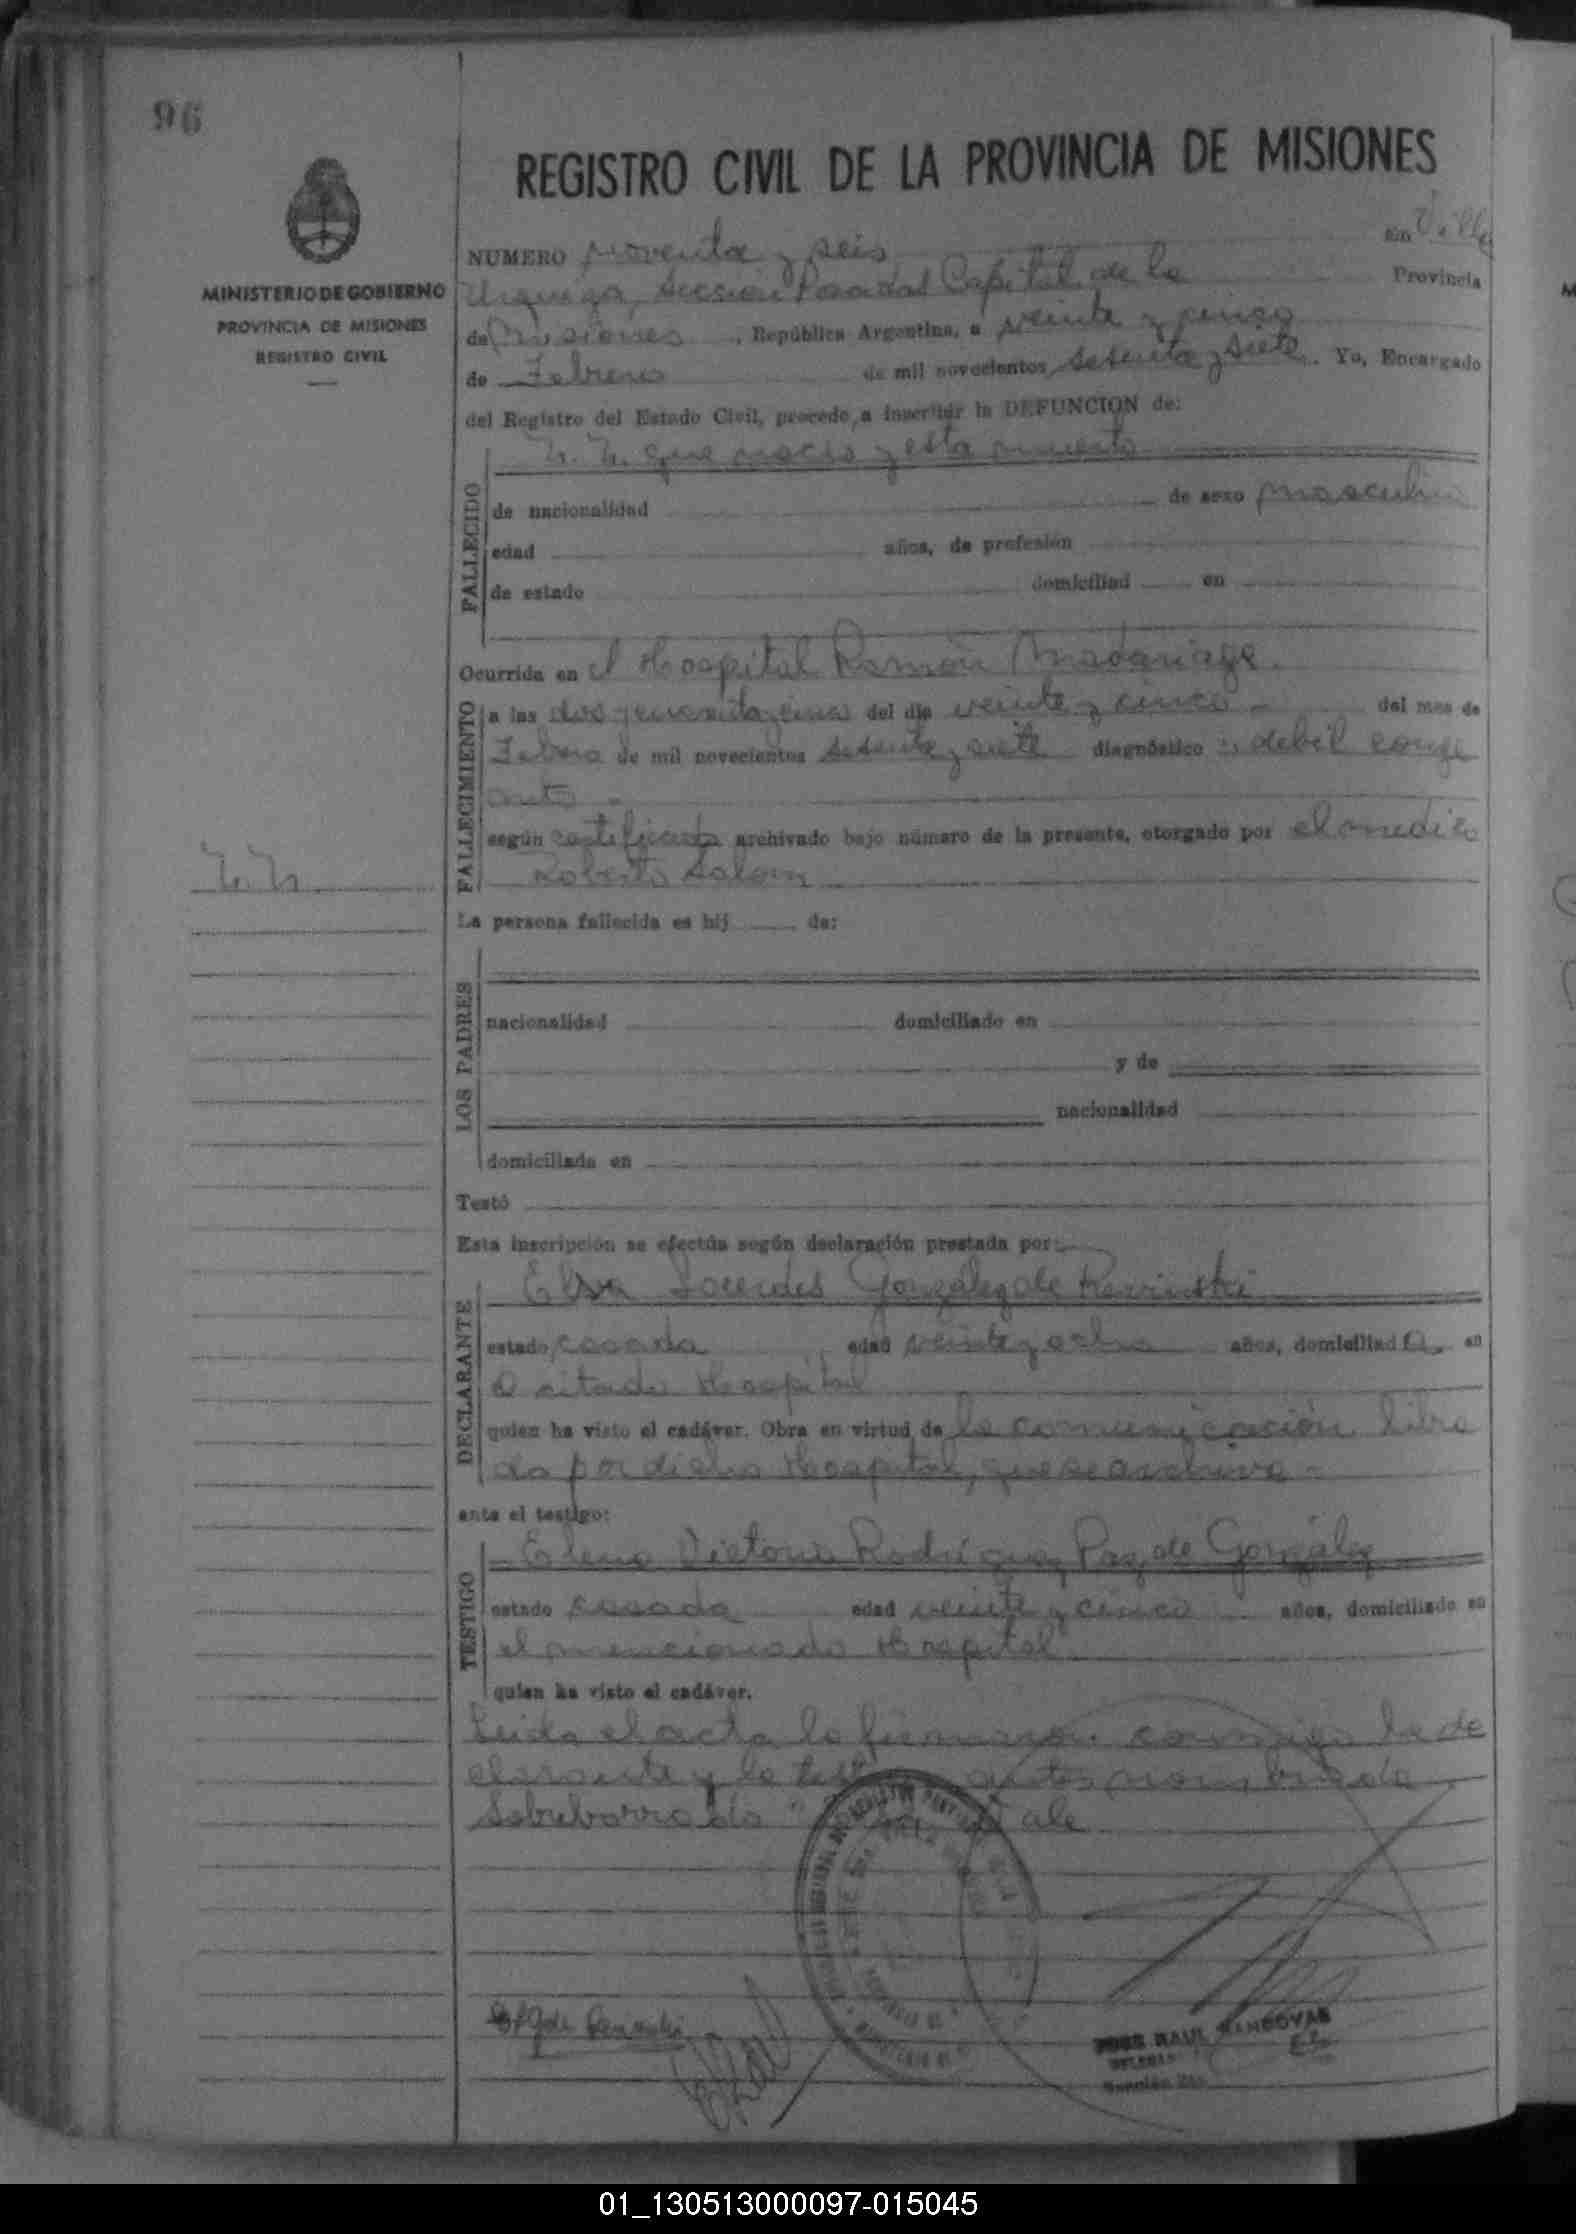 96
MINISTERIO DE GOBIERNO
PROVINCIA DE MISIONES
REGISTRO CIVIL
REGISTRO CIVIL DE LA PROVINCIA DE MISIONES
NUMERO noventa y seis en Villa
Urquiza, Sección Posadas Capital de la Provincia
de Misiones, República Argentina, a veinte y cinco
de Febrero de mil novecientos setenta y siete. Yo, Encargado
del Registro del Estado Civil, procedo a inscribir la DEFUNCION de:
N. N. que nacio y esta muerto
FALLECIDO
de nacionalidad de sexo masculino
edad años, de profesión
de estado domiciliad en
Ocurrida en el Hospital Ramón Madariaga.
FALLECIMIENTO
a las dos y cincuenta del día veinte y cinco - del mes de
Febrero de mil novecientos setenta y siete diagnóstico: debil conge
nito -
según certificado archivado bajo número de la presente, otorgado por el medico
Roberto
N. N.
La persona fallecida es hij de:
LOS PADRES
nacionalidad domiciliado en
y de
nacionalidad
domiciliada en
Testó
Esta inscripción se efectúa según declaración prestada por:
DECLARANTE
Elsa Lourdes González de
estado casada edad veinte y ocho años, domiciliada en
el citado Hospital
quien ha visto el cadáver. Obra en virtud de la comunicación libra
da por dicho Hospital, que se archiva -
ante el testigo:
TESTIGO
Elena Victoria Rodríguez Paz de González
estado casada edad veinte y cinco años, domiciliado en
el mencionado Hospital
quien ha visto el cadáver.
Leida el acta la firmaron conmigo la de
clarante y la antes nombrada
Sobreborrado Vale
JOSE RAUL SANDOVAL
01_130513000097-015045